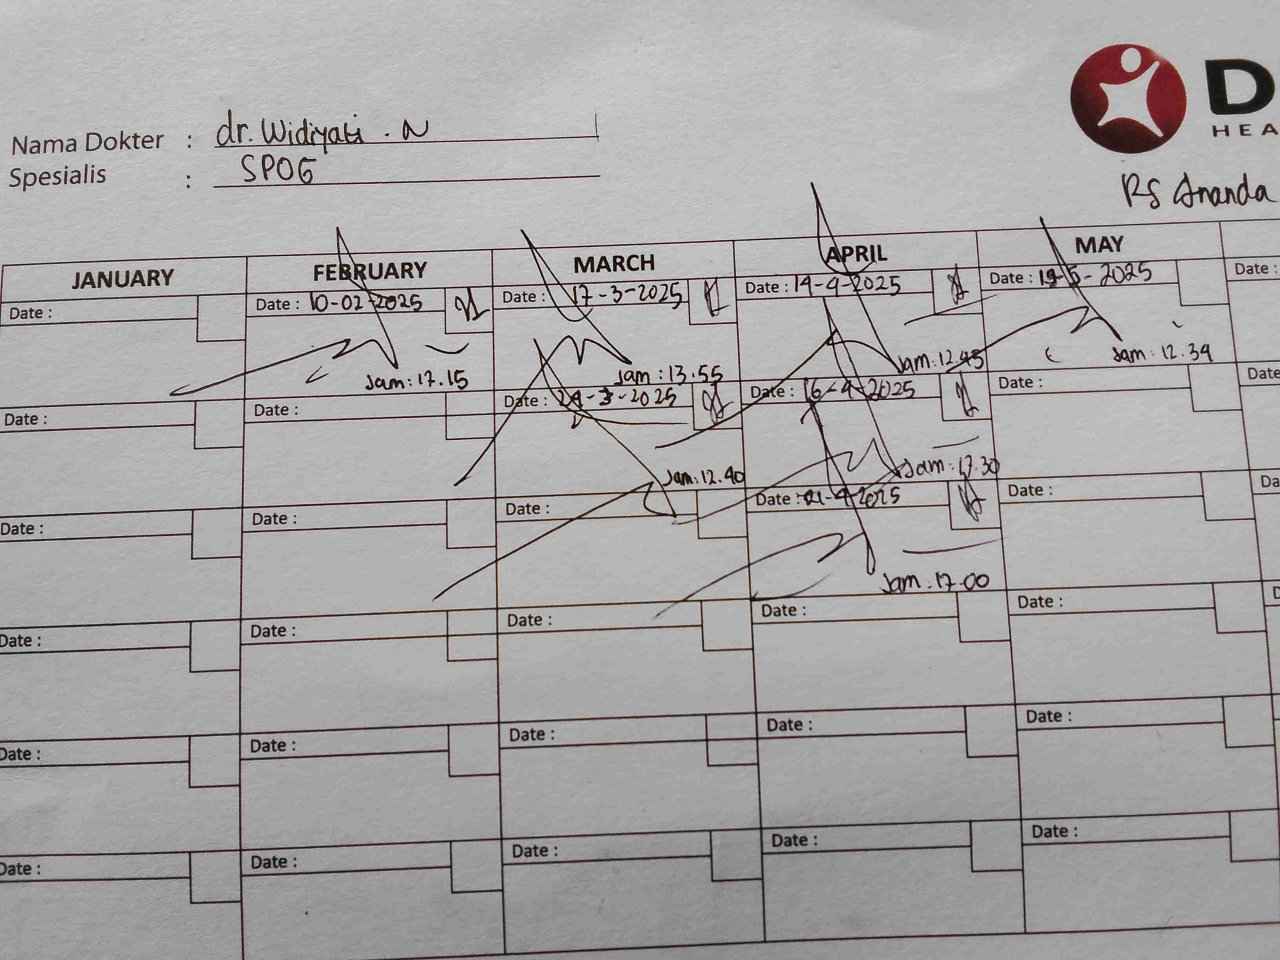 D
HEA
Nama Dokter : dr. Widiyati . N
Spesialis : SPOG
RS Ananda
JANUARY FEBRUARY MARCH APRIL MAY
Date : Date : 10-02-2025 Date : 17-3-2025 Date : 14-4-2025 Date : 19-5-2025 Date :
Jam : 17.15 Jam : 13.55 Jam : 12.45 Jam : 12.34
Date : Date : Date : 24-3-2025 Date : 16-4-2025 Date : Date
Jam : 12.40 Jam : 17.30
Date : Date : Date : Date : 21-4-2025 Date : Da
Jam : 17.00
Date : Date : Date : Date : Date : D
Date : Date : Date : Date : Date :
Date : Date : Date : Date : Date :